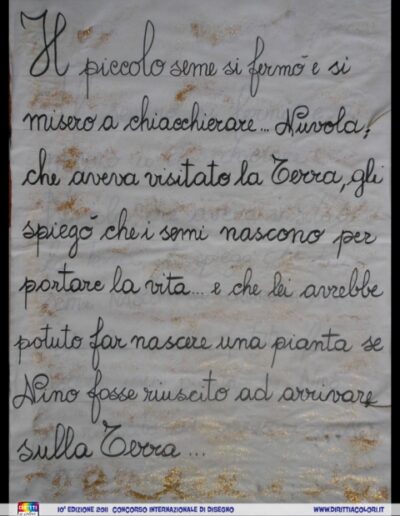 Il piccolo seme si fermò e si
misero a chiacchierare... Nuvola,
che aveva visitato la Terra, gli
spiegò che i semi nascono per
portare la vita... e che lei avrebbe
potuto far nascere una pianta se
Nino fosse riuscito ad arrivare
sulla Terra ...
10° EDIZIONE 2011 CONCORSO INTERNAZIONALE DI DISEGNO WWW.DIRITTIACOLORI.IT